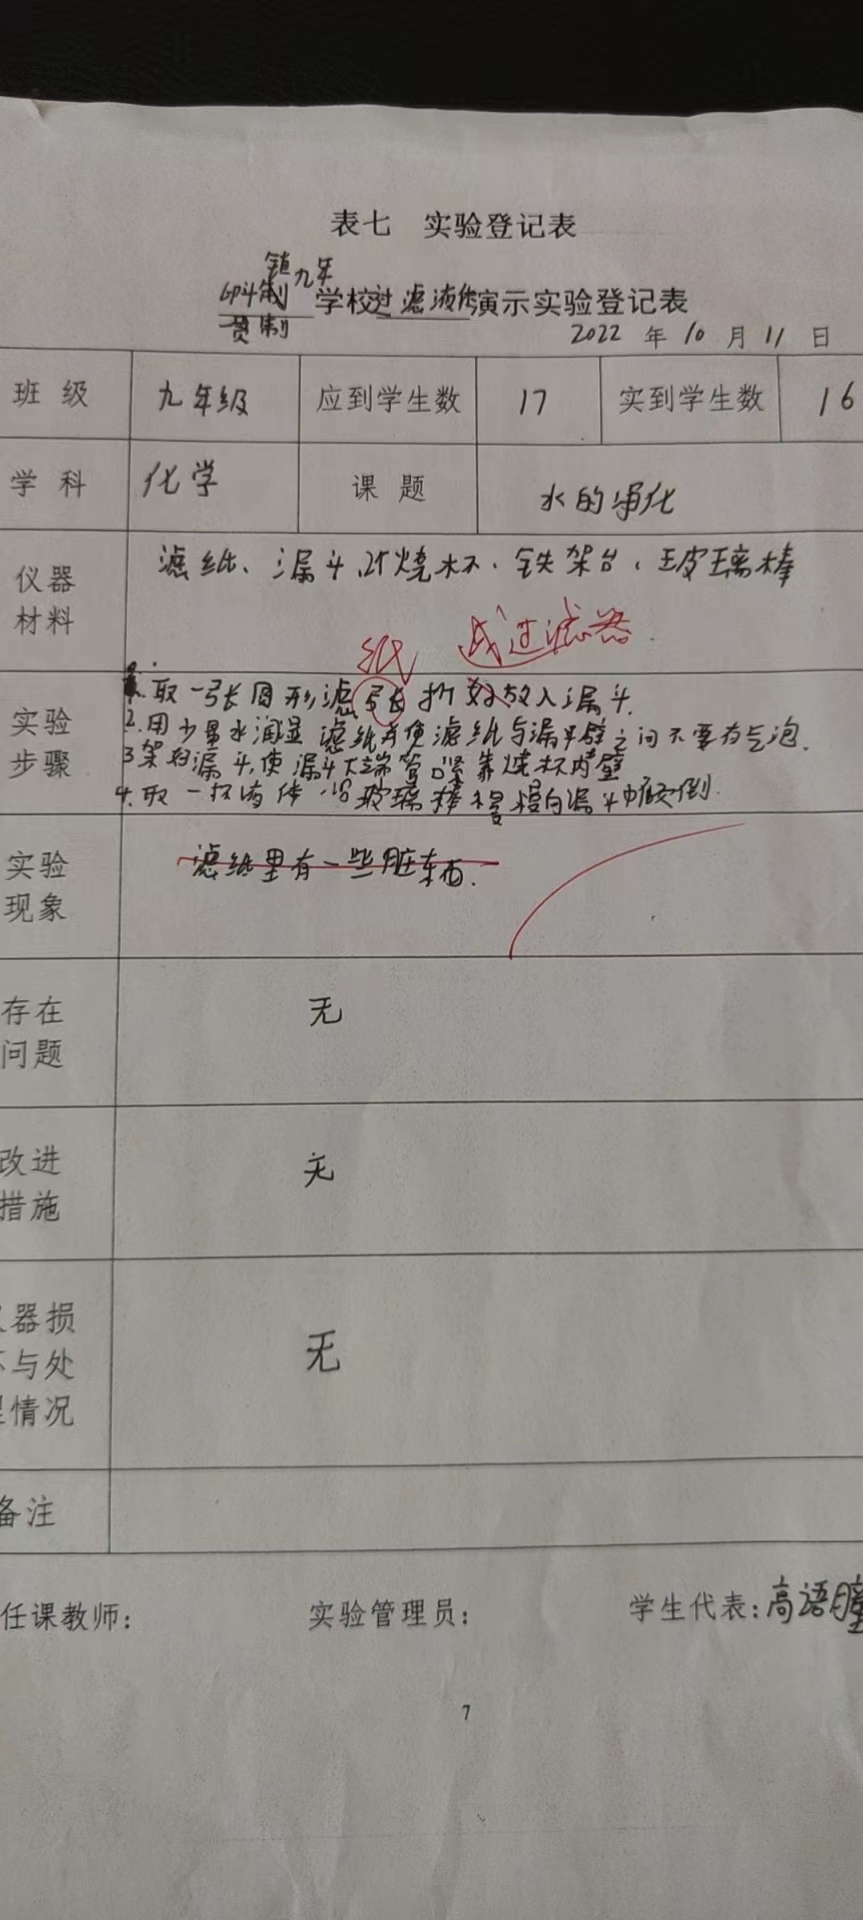 表七 实验登记表
镇九年
一贯制
学校过滤液体演示实验登记表
2022 年 10 月 11 日
班 级 九年级 应到学生数 17 实到学生数 16
学 科 化学 课 题 水的净化
仪器
材料
滤纸、漏斗、烧杯、铁架台、玻璃棒
纸 成过滤器
实验
步骤
1.取一张圆形滤张折好放入漏斗.
2.用少量水润湿滤纸并使滤纸与漏斗壁之间不要有气泡.
3架好漏斗,使漏斗下端管口紧靠烧杯内壁
4.取一杯液体 沿玻璃棒慢慢向漏斗中倾倒.
实验
现象
滤纸里有一些脏东西.
存在
问题
无
改进
措施
无
器损
与处
情况
无
备注
任课教师: 实验管理员: 学生代表:高语瞳
7